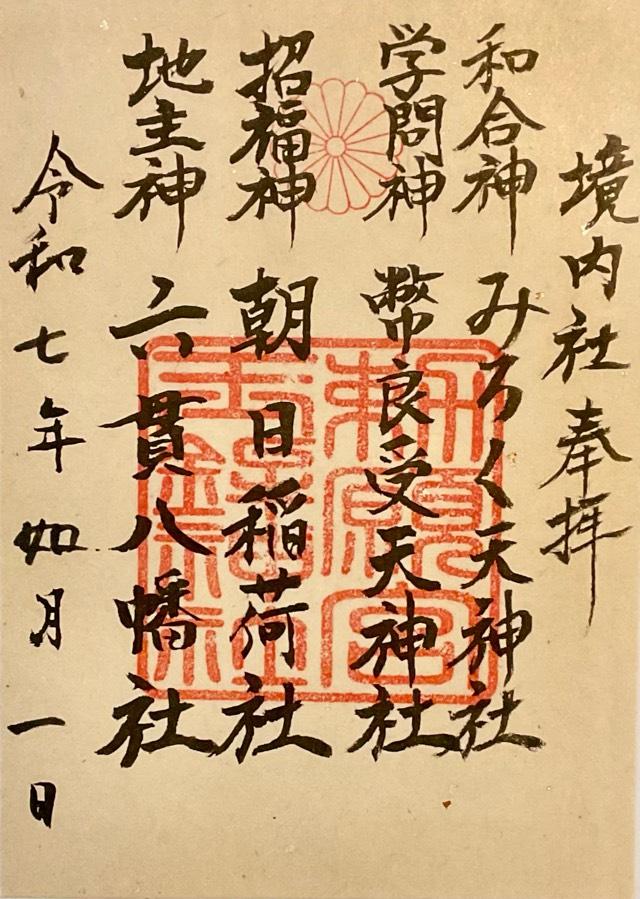 境内社 奉拝
和合神 みろく天神社
学問神 幣良受天神社
招福神 朝日稲荷社
地主神 六貫八幡社
令和七年如月一日